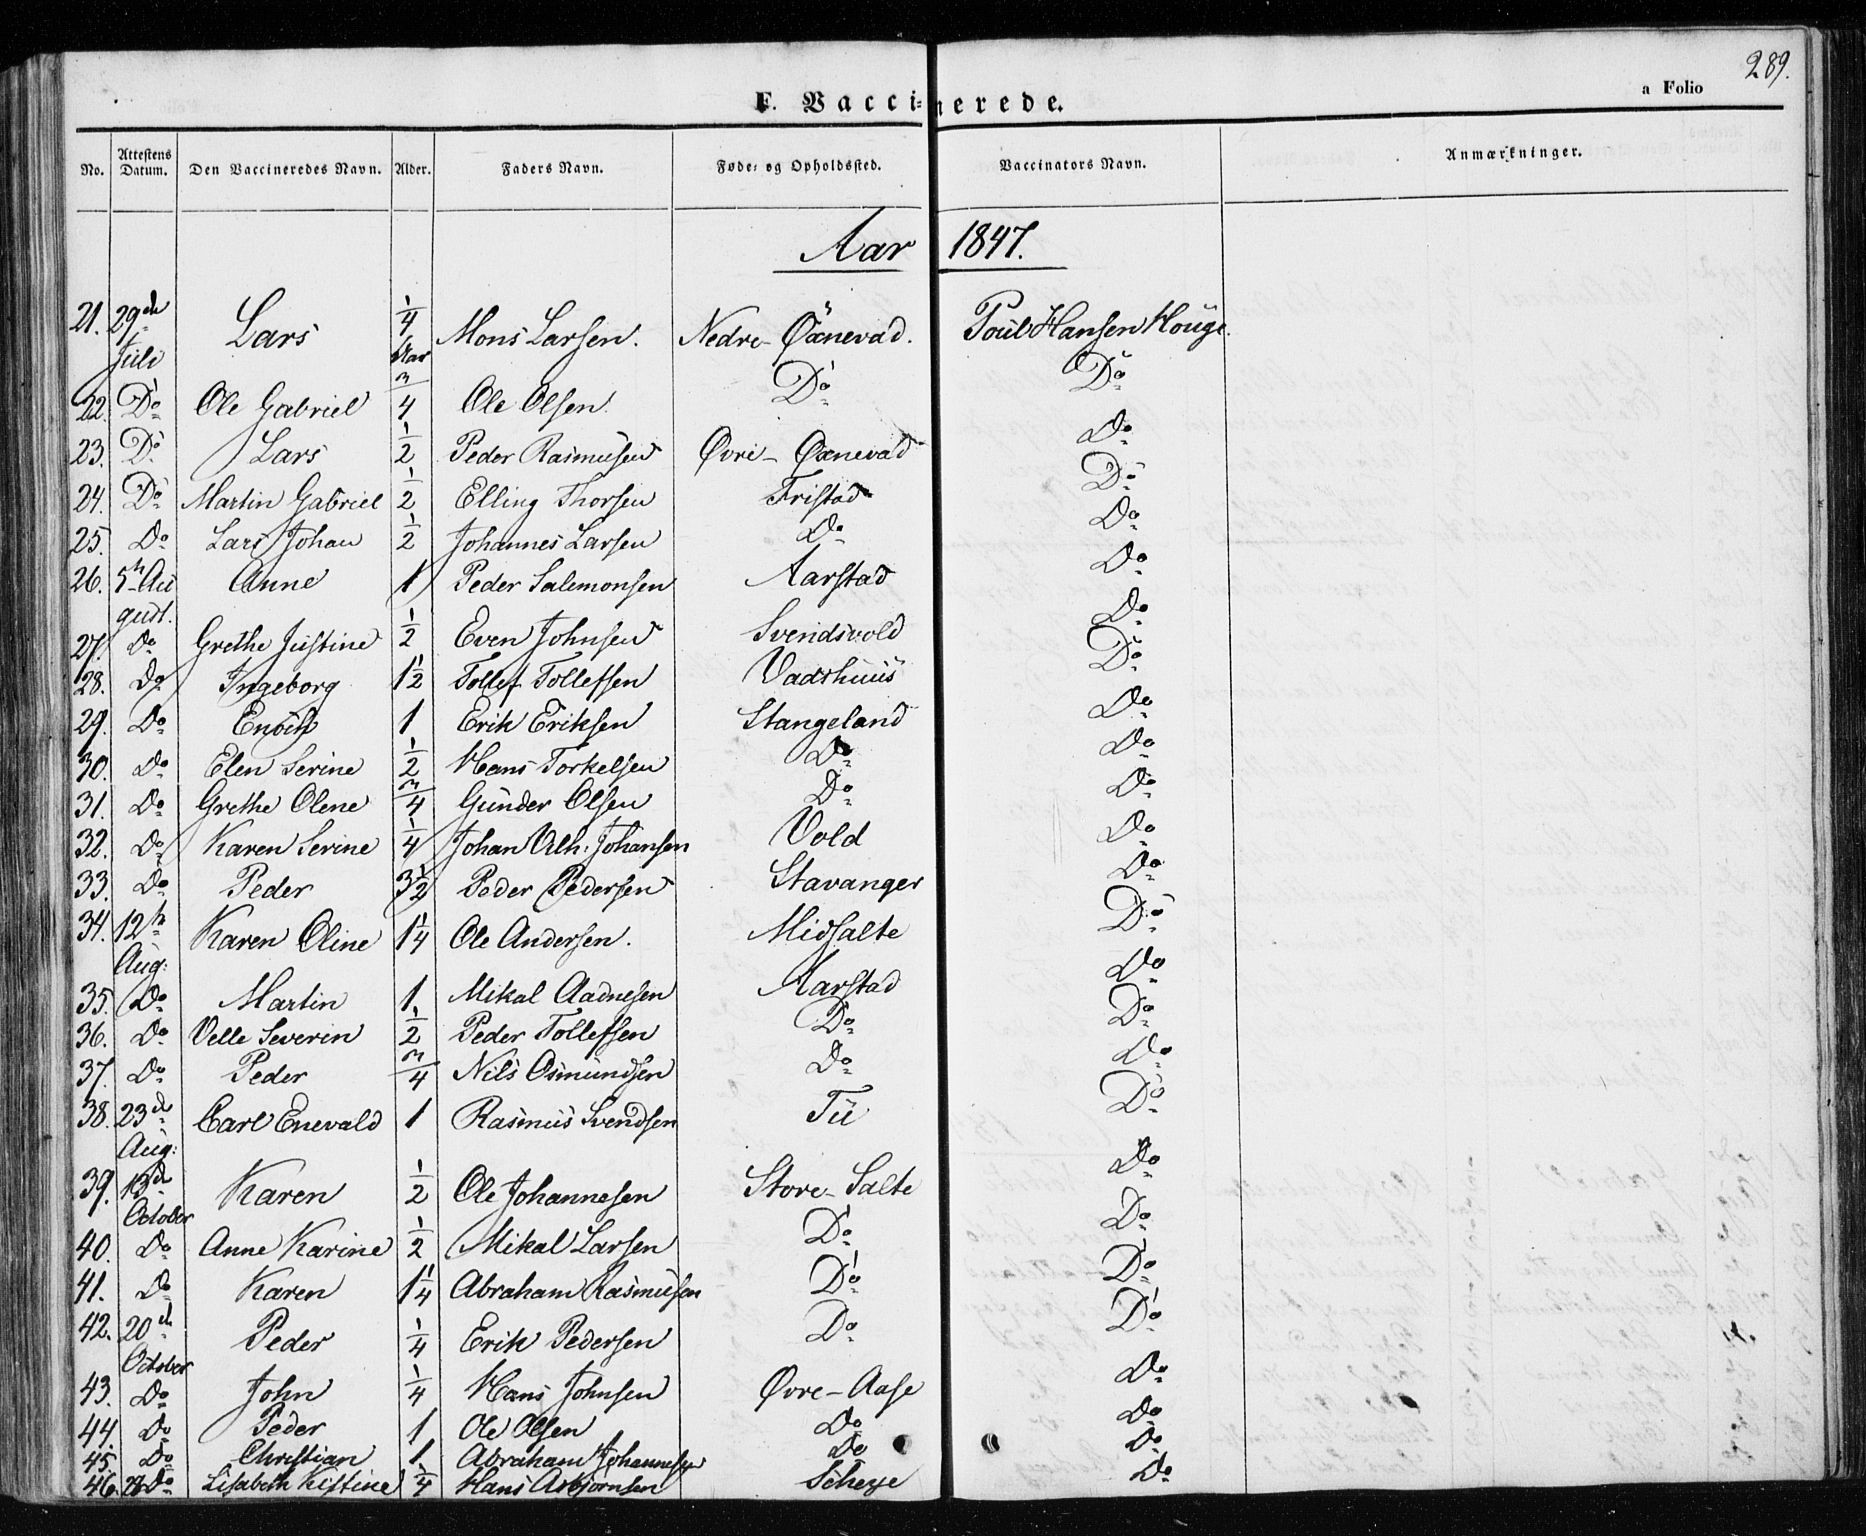 289.
a Folio
F. Vaccinerede.
No. Attestens Datum. Den Vaccineredes Navn. Alder. Faders Navn. Føde- og Opholdssted. Vaccinators Navn. Anmærkninger.
Aar 1847.
21. 29de Juli Lars 1/4 Aar Mons Larsen. Nedre-Øxnevad. Poul Hansen Houge.
22. Do Ole Gabriel 3/4 Ole Olsen. Do Do
23. Do Lars 1/2 Peder Rasmusen Øvre-Øxnevad Do
24. Do Martin Gabriel 1/2 Elling Thorsen Fristad Do
25. Do Lars Johan 1/2 Johannes Larsen Do Do
26. 5te August. Anne 1 Peder Salemonsen Aarstad Do
27. Do Grethe Justine 1/2 Even Johnsen Svendsvold Do
28. Do Ingeborg 1 1/2 Tollef Tollefsen Vadshuus Do
29. Do Enoch 1 Erik Eriksen Stangeland Do
30. Do Elen Serine 1/2 Hans Torkelsen Do Do
31. Do Grethe Olene 3/4 Gunder Olsen Do Do
32. Do Karen Serine 1/4 Johan Vilh. Johansen Vold Do
33. Do Peder 3 1/2 Peder Pedersen Stavanger Do
34. 12te Aug: Karen Oline 1 1/4 Ole Andersen. Midsalte Do
35. Do Martin 1 Mikal Aadnesen Aarstad Do
36. Do Velle Severin 1/2 Peder Tollefsen Do Do
37. Do Peder 3/4 Nils Osmundsen Do Do
38. 23de Aug: Carl Enevald 1 Rasmus Svendsen Tu Do
39. 13de October Karen 1/2 Ole Johannesen Store-Salte Do
40. Do Anne Karine 1/2 Mikal Larsen Do Do
41. Do Karen 1 1/4 Abraham Rasmusen Do Do
42. 20de October Peder 1/4 Erik Pedersen Do Do
43. Do John 1/4 Hans Johnsen Øvre-Aase Do
44. Do Peder 1 Ole Olsen Do Do
45. Do Christian 1 Abraham Johannesen Do Do
46. Do Lisabeth Kistine 1/4 Hans Asbjørnsen Do